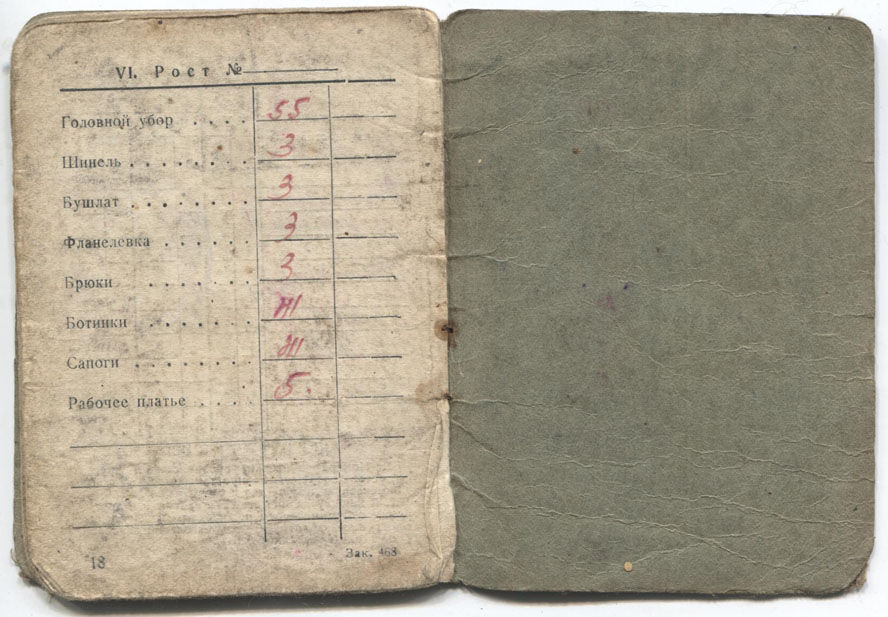 VI. Рост №
Головной убор . . . . 55
Шинель . . . . . . . . 3
Бушлат . . . . . . . . 3
Фланелевка . . . . . . 3
Брюки . . . . . . . 3
Ботинки . . . . . . .
Сапоги . . . . . . . .
Рабочее платье . . . . 5.
18 Зак. 468